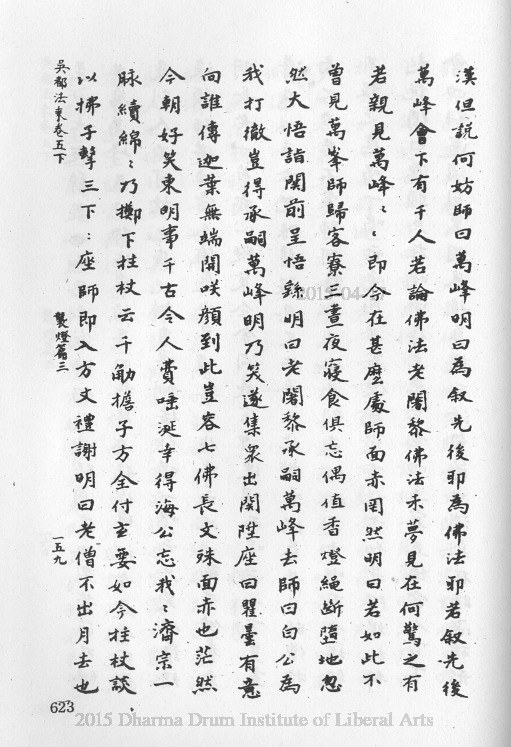 漢但說何妨師曰萬峰明曰為叙先後耶為佛法耶若叙先後
萬峰會下有千人若論佛法老闍黎佛法未夢見在何驚之有
若親見萬峰〻即今在甚麽處師面赤罔然明曰若如此不
曽見萬峯師歸客寮三晝夜寢食俱忘偶值香燈繩斷墮地忽
然大悟詣関前呈悟繇明曰老闍黎承嗣萬峰去師曰白公為
我打徹豈得承嗣萬峰明乃笑遂集衆出関陞座曰瞿曇有意
向誰傳迦葉無端開咲顔到此豈容七佛長文殊面赤也茫然
今朝好笑東明事千古令人費唾涎幸得海公忘我〻濟宗一
脉續綿〻乃擲下拄杖云千觔擔子方全付玄要如今拄杖談
以拂子擊三下〻座師即入方丈禮謝明曰老僧不出月去也
吳都法乗卷五下
製燈篇三
一五九
623
2015-04-
2015 Dharma Drum Institute of Liberal Arts